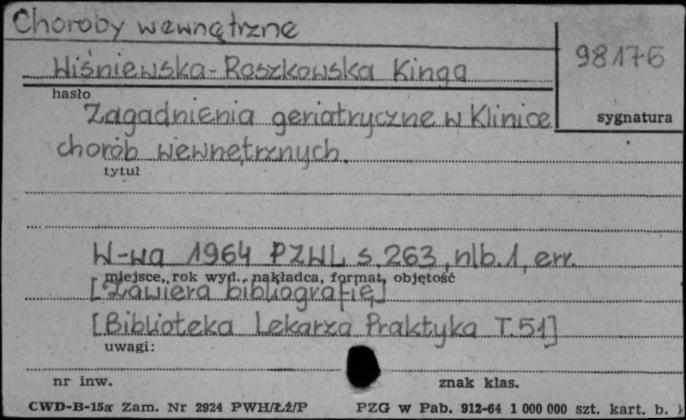 Choroby wewnętrzne
98176
Wiśniewska-Roszkowska Kinga
hasło
sygnatura
Zagadnienia geriatryczne w Klinice
chorób wewnętrznych.
tytuł
W-wa 1964 PZWL s. 263, nlb. 1, err.
miejsce, rok wyd., nakładca, format, objętość
[Zawiera bibliografię]
[Biblioteka Lekarza Praktyka T.51]
uwagi:
nr inw. znak klas.
CWD-B-15a Zam. Nr 2924 PWH/Łż/P PZG w Pab. 912-64 1 000 000 szt. kart. b.